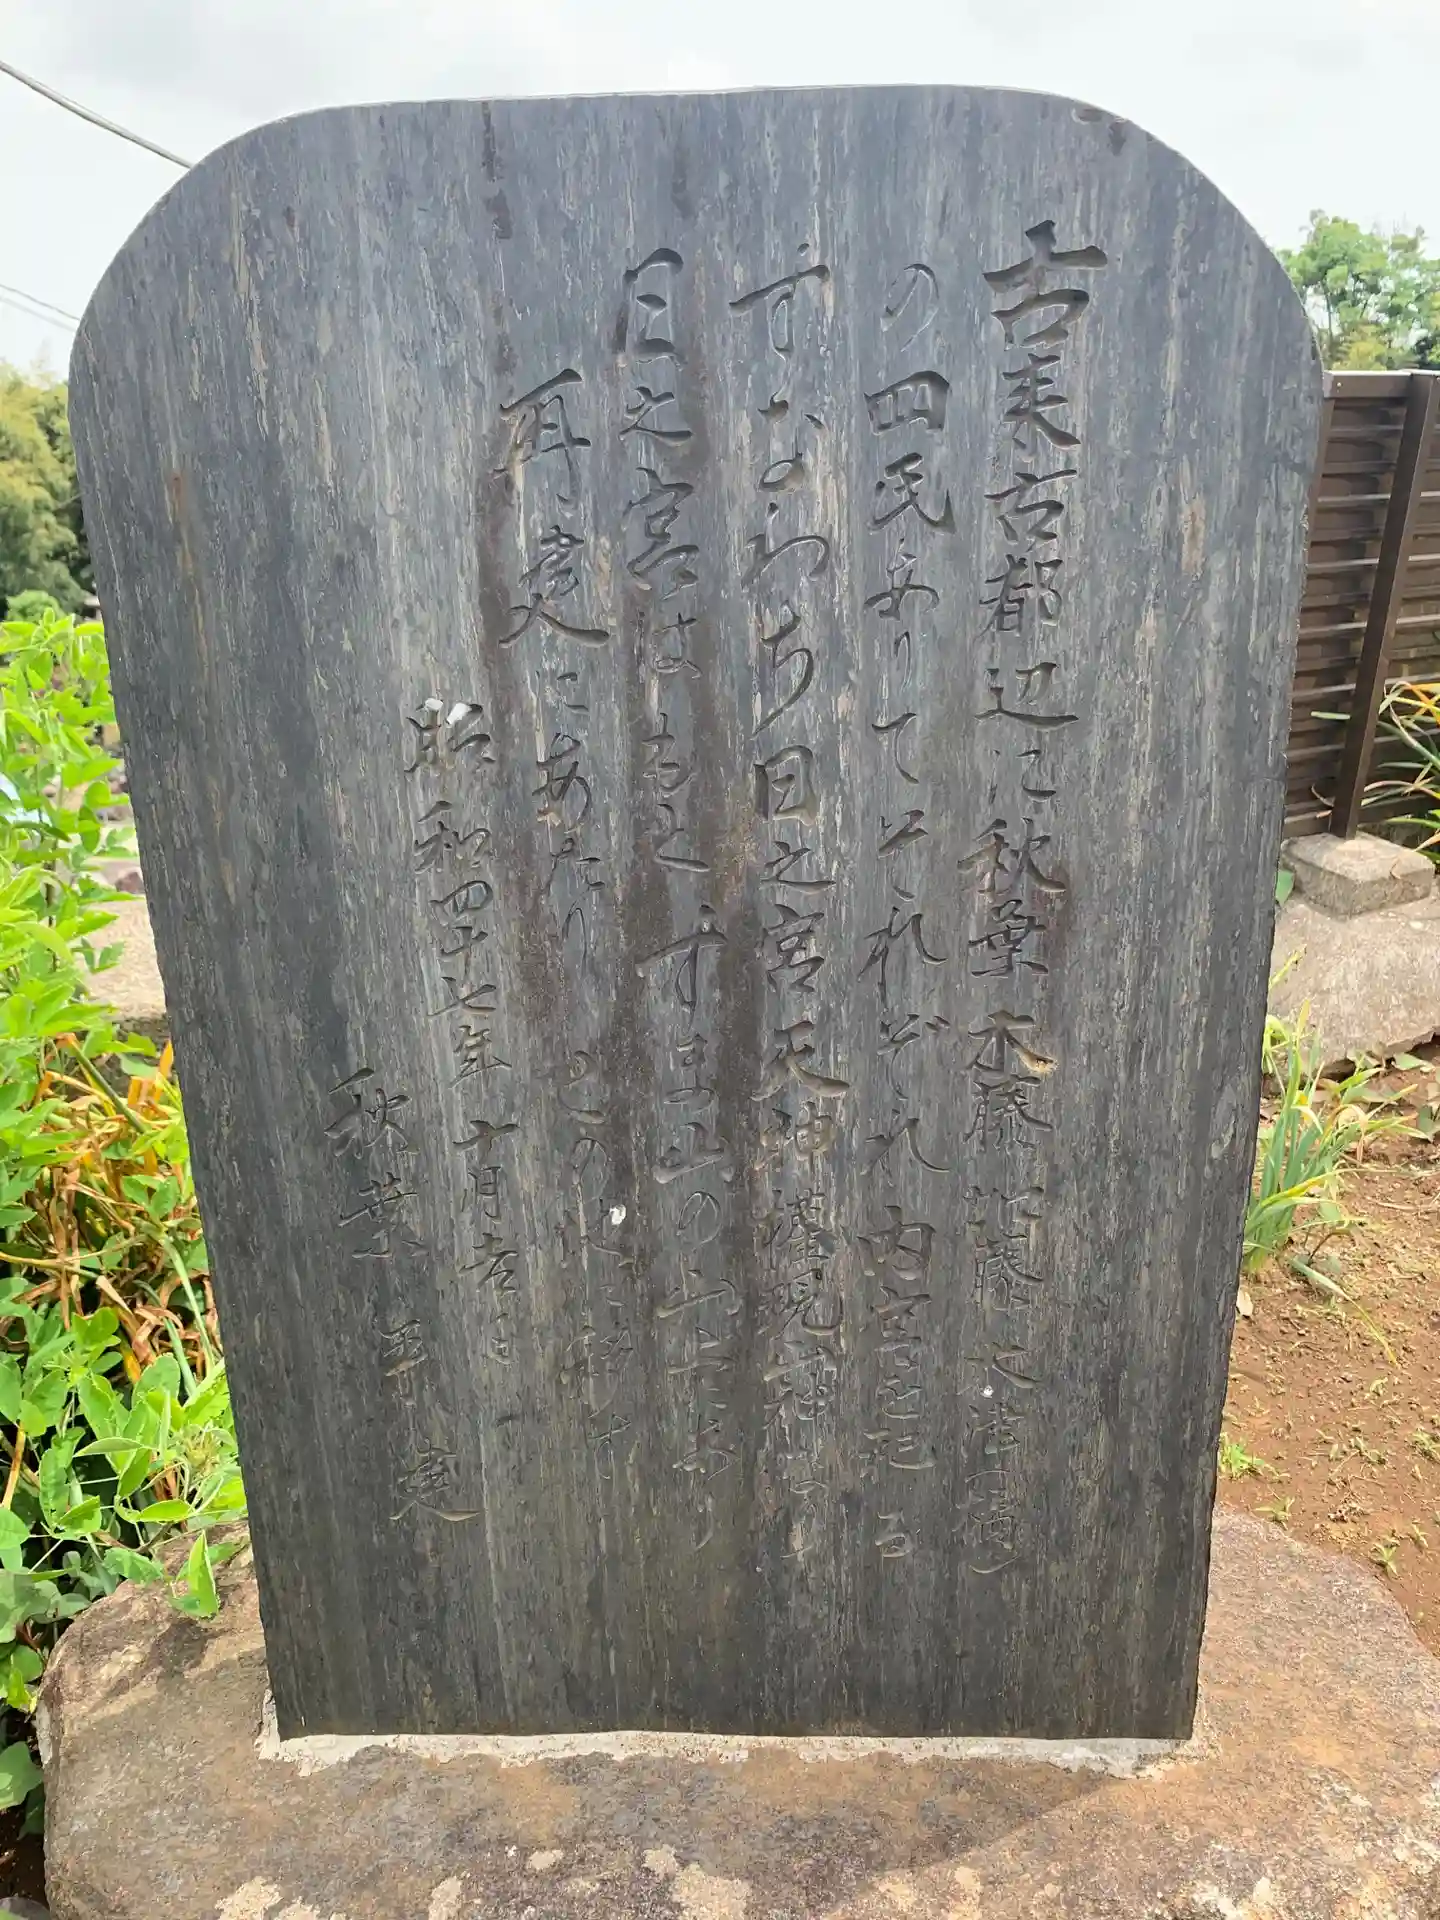 古来古都辺に秋葉木藤加藤大津(高橋)
の四氏ありてそれぞれ内宮を祀る
すなわち日之宮天神権現山神なり
日之宮はもとすま山の上にあり
再建にあたりこの地に移す
昭和四十七年十月吉日
秋葉